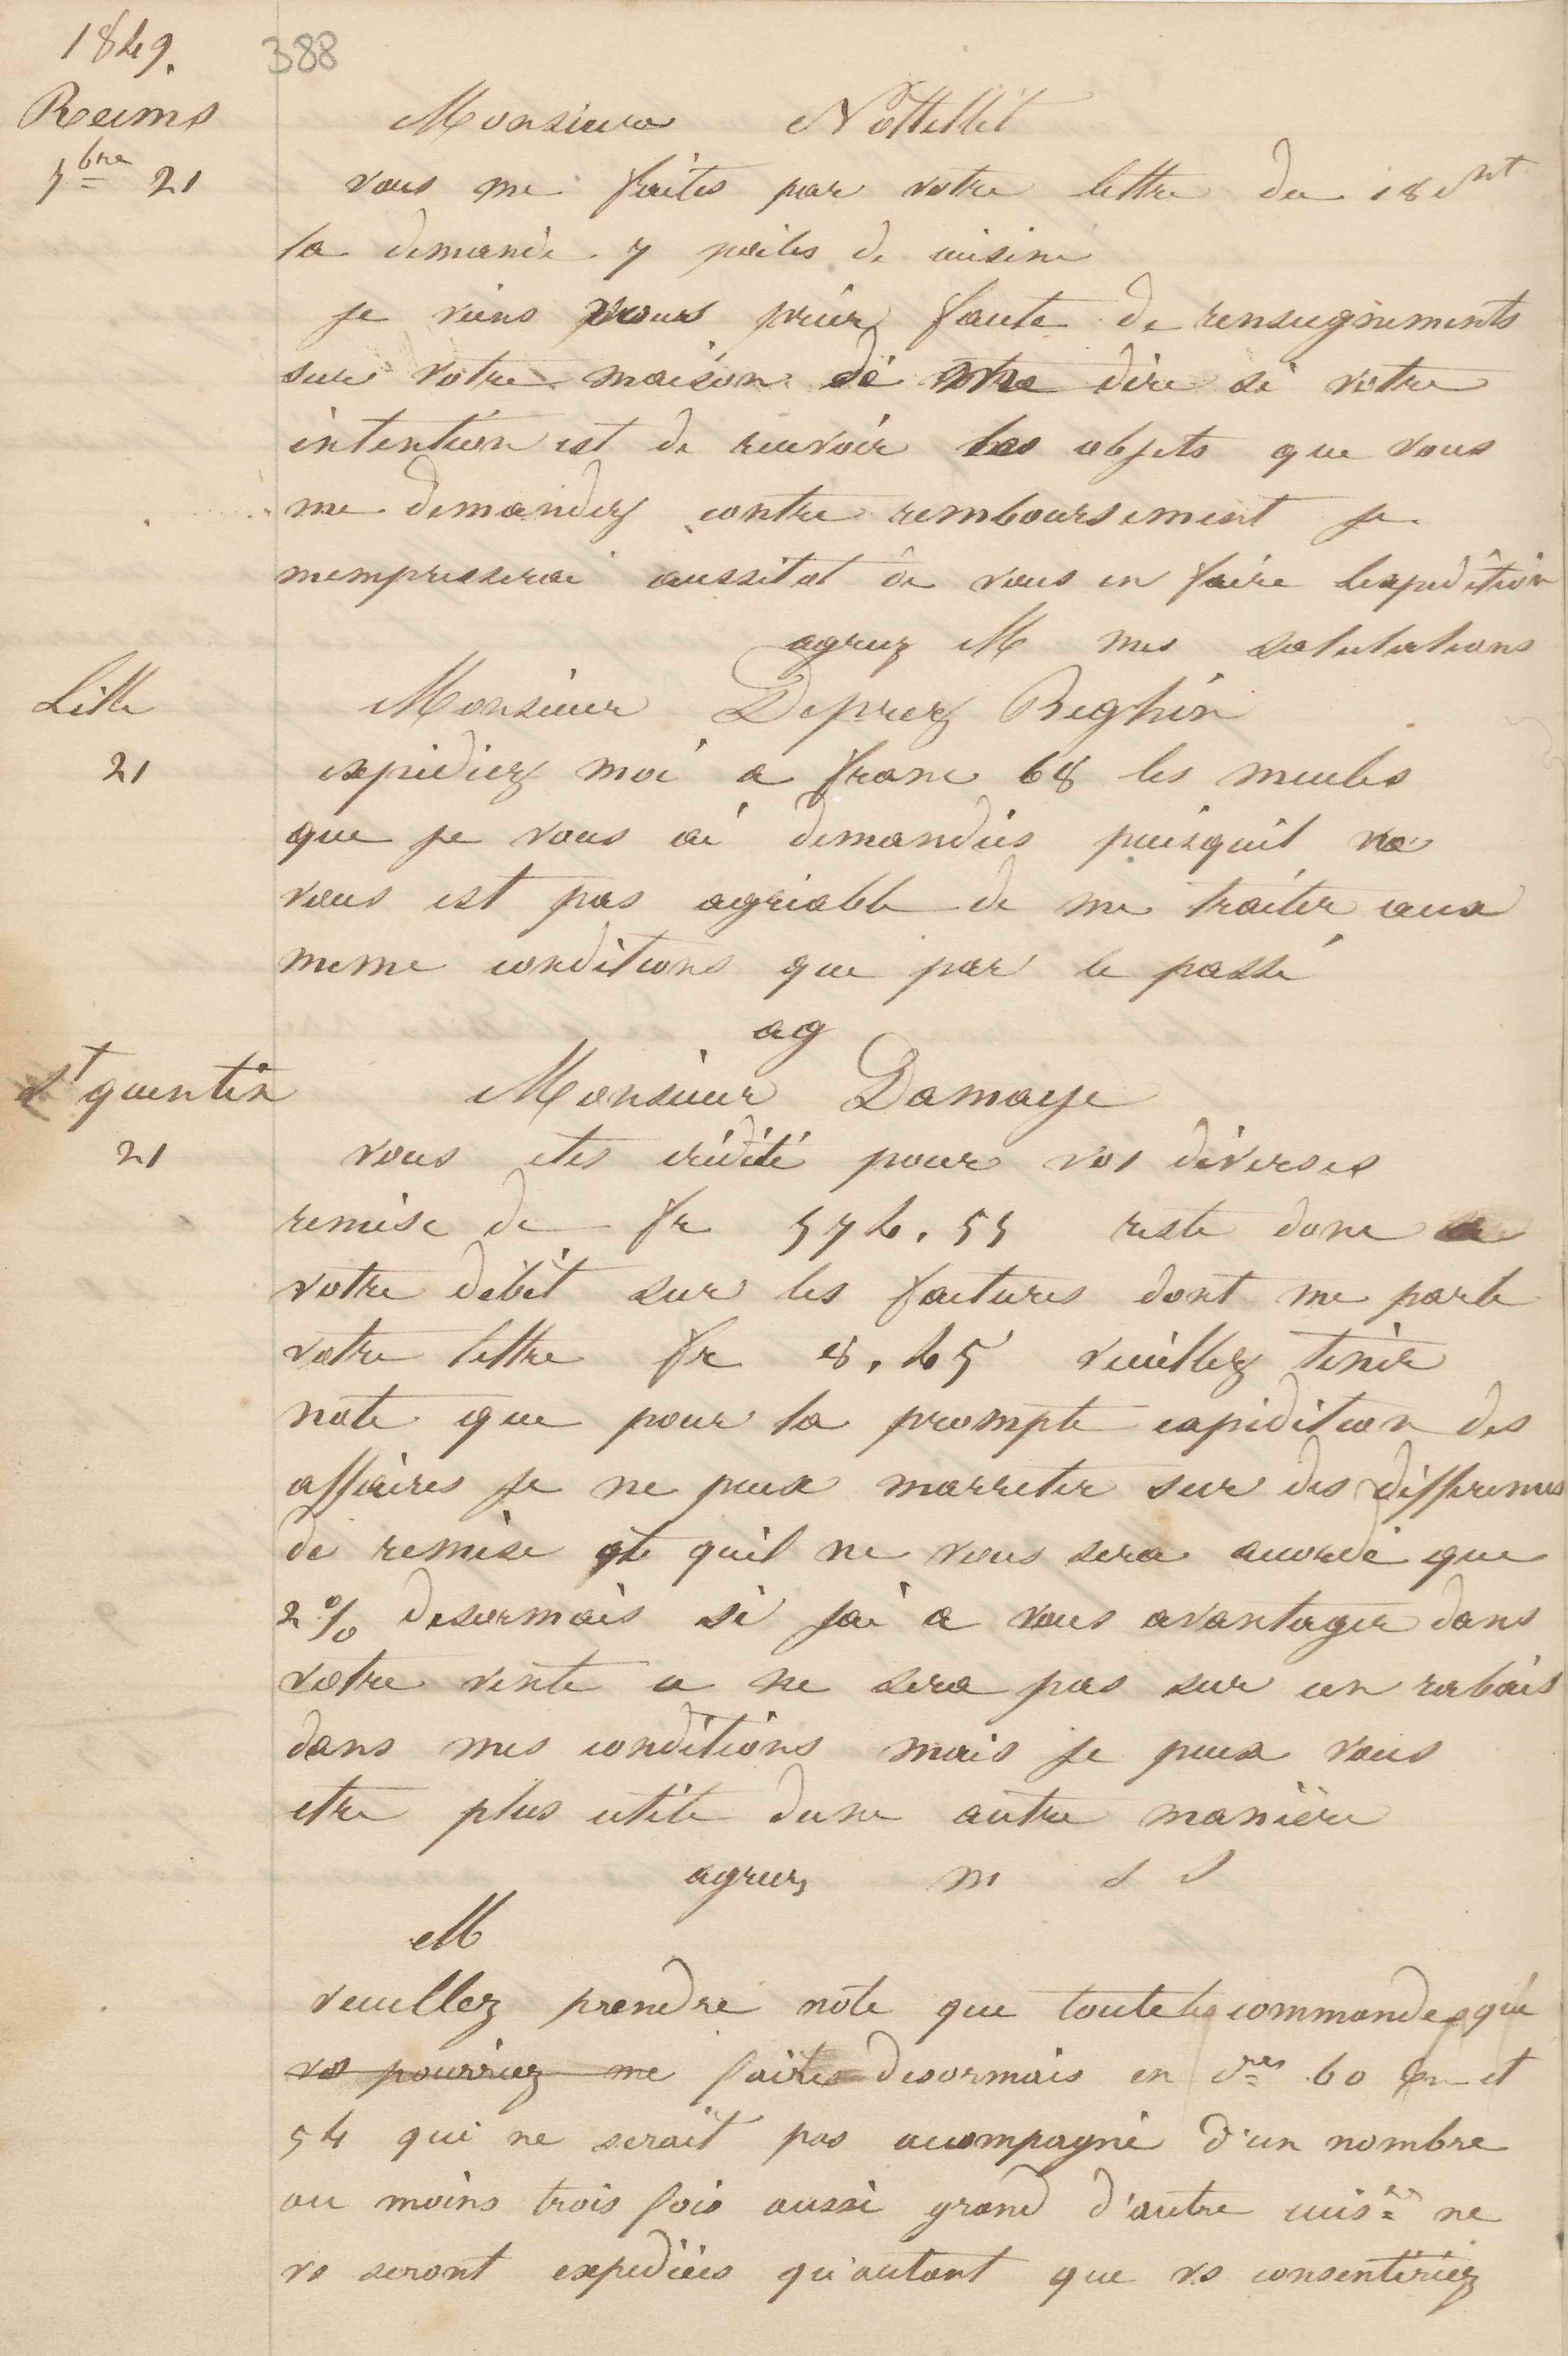 1849.
388
Reims
7bre 21
Monsieur Nottellet
vous me faites par votre lettre du 18 ct
la demande 7 poiles de cuisine
je viens vous prier faute de renseignements
sur votre maison de me dire si votre
intention est de recevoir les objets que vous
me demandez contre remboursement je
mempresserai aussitot de vous en faire lexpedition
agreez M mes salutations
Lille
21
Monsieur Deprez Beghin
expediez moi a franc 68 les meules
que je vous ai demandées puisquil ne
vous est pas agreable de me traiter aux
meme conditions que par le passé
ag
St quentin
21
Monsieur Damaye
vous etes crédité pour vos diverses
remise de fr 574.55 reste donc a
votre débit sur les factures dont me parle
votre lettre fr 8.45 veuillez tenir
note que pour la prompte expedition des
affaires je ne peux marreter sur des differences
de remise qu'il ne vous sera accordé que
2% desormais si jai a vous avantager dans
votre vente ce ne sera pas sur un rabais
dans mes conditions mais je peux vous
etre plus utile dune autre manière
agreez m s S
M
veuillez prendre note que toute les commandes que
vs pourriez me faites desormais en 60 et
54 qui ne serait pas accompagné d'un nombre
au moins trois fois aussi grand d'autre cuisres ne
vs seront expediées qu'autant que vs consentiriez